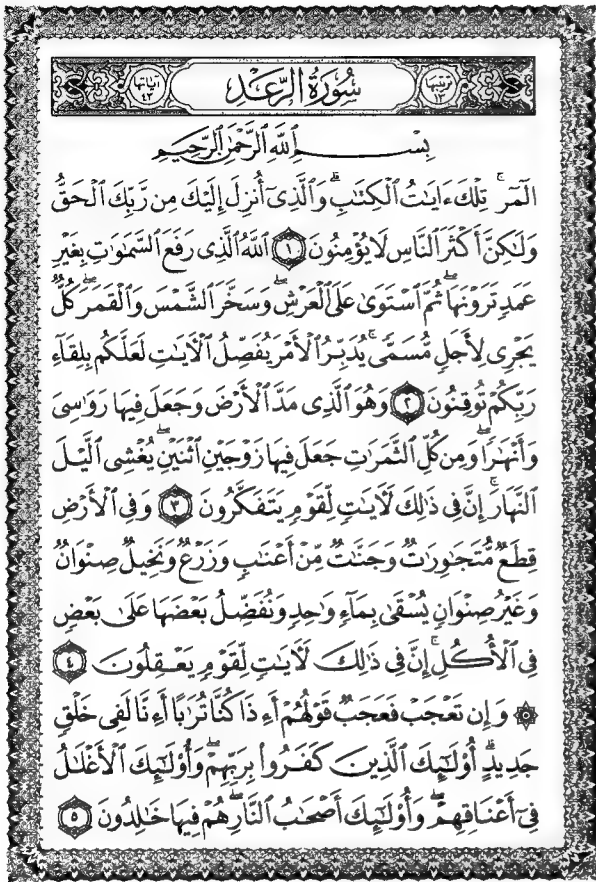 ترتيبها ١٣ سُورَةُ الرَّعْدِ آياتها ٤٣
بِسْمِ ٱللَّهِ ٱلرَّحْمَٰنِ ٱلرَّحِيمِ
الٓمٓر ۚ تِلْكَ ءَايَٰتُ ٱلْكِتَٰبِ ۗ وَٱلَّذِىٓ أُنزِلَ إِلَيْكَ مِن رَّبِّكَ ٱلْحَقُّ
وَلَٰكِنَّ أَكْثَرَ ٱلنَّاسِ لَا يُؤْمِنُونَ ١ ٱللَّهُ ٱلَّذِى رَفَعَ ٱلسَّمَٰوَٰتِ بِغَيْرِ
عَمَدٍ تَرَوْنَهَا ۖ ثُمَّ ٱسْتَوَىٰ عَلَى ٱلْعَرْشِ ۖ وَسَخَّرَ ٱلشَّمْسَ وَٱلْقَمَرَ ۖ كُلٌّ
يَجْرِى لِأَجَلٍ مُّسَمًّى ۚ يُدَبِّرُ ٱلْأَمْرَ يُفَصِّلُ ٱلْءَايَٰتِ لَعَلَّكُم بِلِقَآءِ
رَبِّكُمْ تُوقِنُونَ ٢ وَهُوَ ٱلَّذِى مَدَّ ٱلْأَرْضَ وَجَعَلَ فِيهَا رَوَٰسِىَ
وَأَنْهَٰرًا ۖ وَمِن كُلِّ ٱلثَّمَرَٰتِ جَعَلَ فِيهَا زَوْجَيْنِ ٱثْنَيْنِ ۖ يُغْشِى ٱلَّيْلَ
ٱلنَّهَارَ ۚ إِنَّ فِى ذَٰلِكَ لَءَايَٰتٍ لِّقَوْمٍ يَتَفَكَّرُونَ ٣ وَفِى ٱلْأَرْضِ
قِطَعٌ مُّتَجَٰوِرَٰتٌ وَجَنَّٰتٌ مِّنْ أَعْنَٰبٍ وَزَرْعٌ وَنَخِيلٌ صِنْوَانٌ
وَغَيْرُ صِنْوَانٍ يُسْقَىٰ بِمَآءٍ وَٰحِدٍ وَنُفَضِّلُ بَعْضَهَا عَلَىٰ بَعْضٍ
فِى ٱلْأُكُلِ ۚ إِنَّ فِى ذَٰلِكَ لَءَايَٰتٍ لِّقَوْمٍ يَعْقِلُونَ ٤
۞ وَإِن تَعْجَبْ فَعَجَبٌ قَوْلُهُمْ أَءِذَا كُنَّا تُرَٰبًا أَءِنَّا لَفِى خَلْقٍ
جَدِيدٍ ۗ أُو۟لَٰٓئِكَ ٱلَّذِينَ كَفَرُوا۟ بِرَبِّهِمْ ۖ وَأُو۟لَٰٓئِكَ ٱلْأَغْلَٰلُ
فِىٓ أَعْنَاقِهِمْ ۖ وَأُو۟لَٰٓئِكَ أَصْحَٰبُ ٱلنَّارِ ۖ هُمْ فِيهَا خَٰلِدُونَ ٥